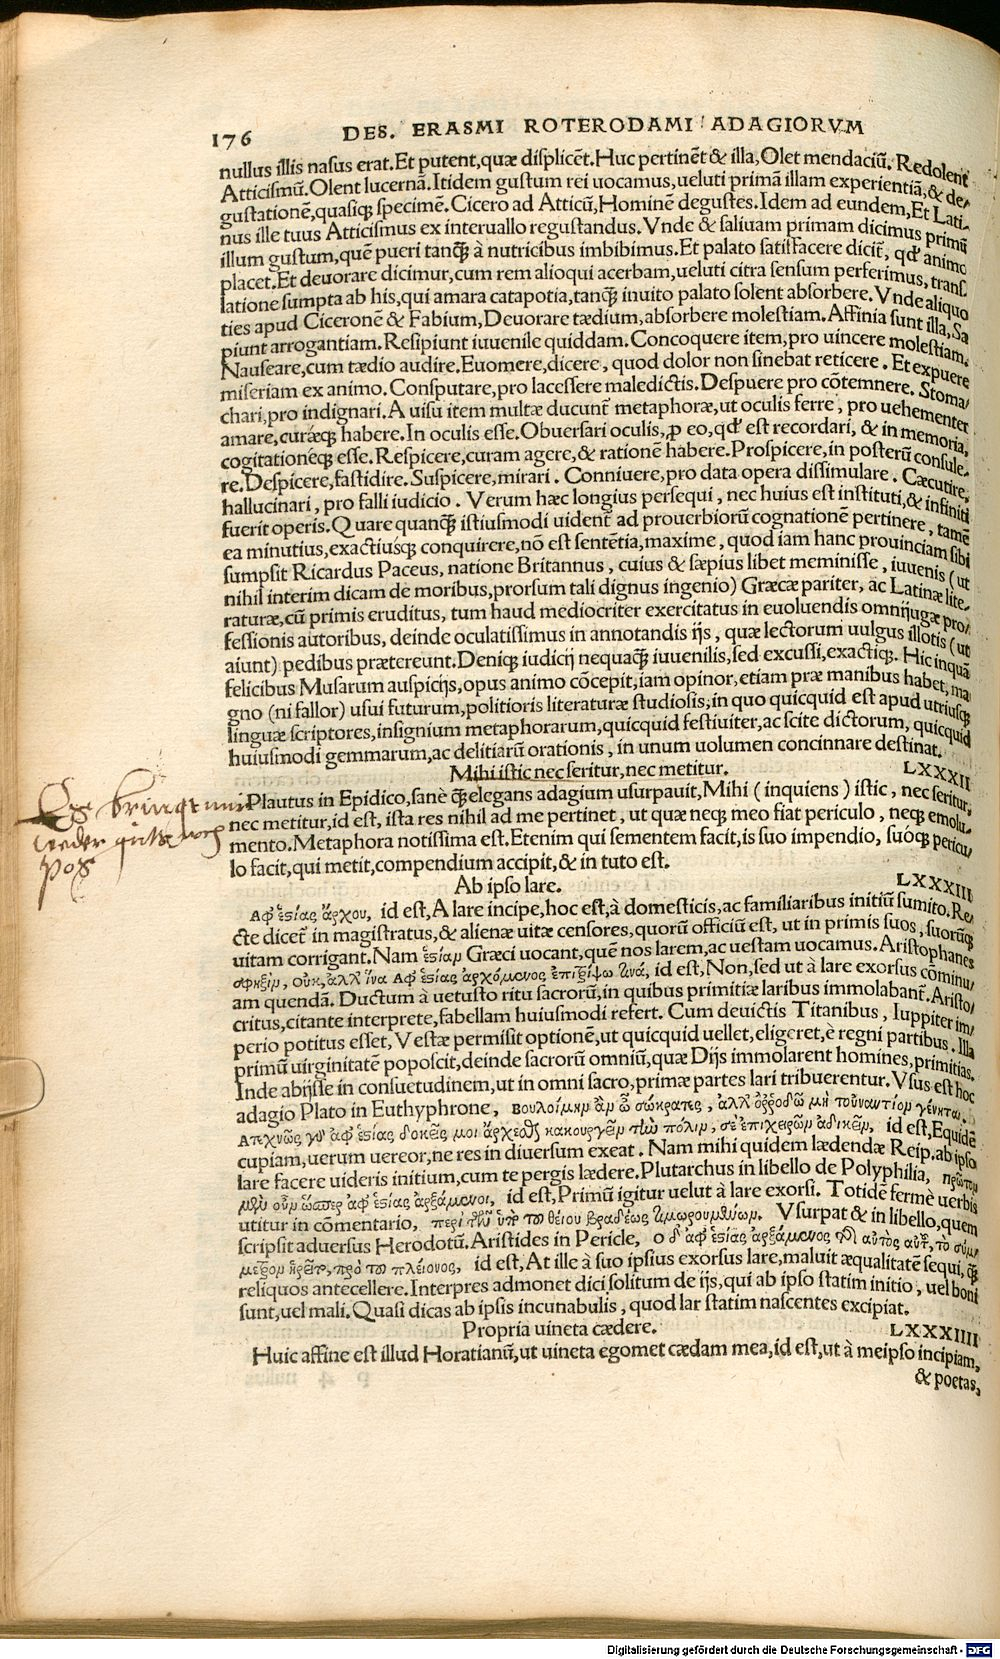 176 DES. ERASMI ROTERODAMI ADAGIORVM
nullus illis nasus erat. Et putent, quæ displicẽt. Huc pertinẽt & illa, Olet mendaciũ. Redolent
Atticismũ. Olent lucernã. Itidem gustum rei uocamus, ueluti primã illam experientiã, & de/
gustationẽ, quasiq; specimẽ. Cicero ad Atticũ, Hominẽ degustes. Idem ad eundem, Et Lati-
nus ille tuus Atticismus ex interuallo regustandus. Vnde & saliuam primam dicimus primũ
illum gustum, quẽ pueri tanq̃ à nutricibus imbibimus. Et palato satisfacere dicit̃, qđ animo
placet. Et deuorare dicimur, cum rem alioqui acerbam, ueluti citra sensum perferimus, trans
latione sumpta ab his, qui amara catapotia, tanq̃ inuito palato solent absorbere. Vnde aliquo
ties apud Ciceronẽ & Fabium, Deuorare tædium, absorbere molestiam. Affinia sunt illa, Sa
piunt arrogantiam. Resipiunt iuuenile quiddam. Concoquere item, pro uincere molestiam.
Nauseare, cum tædio audire. Euomere, dicere, quod dolor non sinebat reticere. Et expuere
miseriam ex animo. Consputare, pro lacessere maledictis. Despuere pro cõtemnere. Stoma/
chari, pro indignari. A uisu item multæ ducunt̃ metaphoræ, ut oculis ferre, pro uehementer
amare, curæq; habere. In oculis esse. Obuersari oculis, ꝓ eo, qđ est recordari, & in memoria,
cogitationeq; esse. Respicere, curam agere, & rationẽ habere. Prospicere, in posterũ consule-
re. Despicere, fastidire. Suspicere, mirari. Conniuere, pro data opera dissimulare. Cæcutire,
hallucinari, pro falli iudicio. Verum hæc longius persequi, nec huius est instituti, & infiniti
fuerit operis. Quare quanq̃ istiusmodi uident̃ ad prouerbiorũ cognationẽ pertinere, tamẽ
ea minutius, exactiusq; conquirere, nõ est sentẽtia, maxime, quod iam hanc prouinciam sibi
sumpsit Ricardus Paceus, natione Britannus, cuius & sæpius libet meminisse, iuuenis (ut
nihil interim dicam de moribus, prorsum tali dignus ingenio) Græcæ pariter, ac Latinæ lite-
raturæ, cũ primis eruditus, tum haud mediocriter exercitatus in euoluendis omnijugæ pro/
fessionis autoribus, deinde oculatissimus in annotandis ijs, quæ lectorum uulgus illotis (ut
aiunt) pedibus prætereunt. Deniq; iudicij nequaq̃ iuuenilis, sed excussi, exactiq;. Hic inquã
felicibus Musarum auspicijs, opus animo cõcepit, iam opinor, etiam præ manibus habet, ma
gno (ni fallor) usui futurum, politioris literaturæ studiosis, in quo quicquid est apud utriusq;
linguæ scriptores, insignium metaphorarum, quicquid festiuiter, ac scite dictorum, quicquid
huiusmodi gemmarum, ac delitiarũ orationis, in unum uolumen concinnare destinat.
Mihi istic nec seritur, nec metitur. LXXXII
Plautus in Epidico, sanè q̃ elegans adagium usurpauit, Mihi (inquiens) istic, nec seritur,
nec metitur, id est, ista res nihil ad me pertinet, ut quæ neq; meo fiat periculo, neq; emolu-
mento. Metaphora notissima est. Etenim qui sementem facit, is suo impendio, suóq; pericu/
lo facit, qui metit, compendium accipit, & in tuto est.
Ab ipso lare. LXXXIII
Αφ' ἑστίας ἄρχου, id est, A lare incipe, hoc est, à domesticis, ac familiaribus initiũ sumito. Re/
cte dicet̃ in magistratus, & alienæ uitæ censores, quorũ officiũ est, ut in primis suos, suorũq;
uitam corrigant. Nam ἑστίαν Græci uocant, quẽ nos larem, ac uestam uocamus. Aristophanes
σφηξὶν, οὐκ, ἀλλ' ἵνα Αφ' ἑστίας ἀρχόμενος ἐπιτρίψω τινά, id est, Non, sed ut à lare exorsus cõminu/
am quendã. Ductum à uetusto ritu sacrorũ, in quibus primitiæ laribus immolabant̃. Aristo/
critus, citante interprete, fabellam huiusmodi refert. Cum deuictis Titanibus, Iuppiter im/
perio potitus esset, Vestæ permisit optionẽ, ut quicquid uellet, eligeret, è regni partibus. Illa
primũ uirginitatẽ poposcit, deinde sacrorũ omniũ, quæ Dijs immolarent homines, primitias.
Inde abijsse in consuetudinem, ut in omni sacro, primæ partes lari tribuerentur. Vsus est hoc
adagio Plato in Euthyphrone, βουλοίμην ἂν ὦ σώκρατες, ἀλλ' ὀῤῥοδῶ μὴ τοὐναντίον γένηται.
Ατεχνῶς γὰρ ἀφ' ἑστίας δοκεῖς μοι ἄρχεσθαι κακουργεῖν τὴν πόλιν, σὲ ἐπιχειρῶν ἀδικεῖν, id est, Equidẽ
cupiam, uerum uereor, ne res in diuersum exeat. Nam mihi quidem lædendæ Reip. ab ipso
lare facere uideris initium, cum te pergis lædere. Plutarchus in libello de Polyphilia, πρῶτον
μὲν οὖν ὥσπερ ἀφ' ἑστίας ἀρξάμενοι, id est, Primũ igitur uelut à lare exorsi. Totidẽ fermè uerbis
utitur in cõmentario, περὶ τῶν ὑπὸ τοῦ θείου βραδέως τιμωρουμένων. Vsurpat & in libello, quem
scripsit aduersus Herodotũ. Aristides in Pericle, ο δ' ἀφ' ἑστίας ἀρξάμενος αὐτὸς αὐτοῦ, τὸ σύμ/
μετρον ᾑρεῖτο, πρὸ τοῦ πλείονος, id est, At ille à suo ipsius exorsus lare, maluit æqualitatẽ sequi, q̃
reliquos antecellere. Interpres admonet dici solitum de ijs, qui ab ipso statim initio, uel boni
sunt, uel mali. Quasi dicas ab ipsis incunabulis, quod lar statim nascentes excipiat.
Propria uineta cædere. LXXXIIII
Huic affine est illud Horatianũ, ut uineta egomet cædam mea, id est, ut à meipso incipiam,
& poetas,
Es bringt mir
weder guts noch
Digitalisierung gefördert durch die Deutsche Forschungsgemeinschaft - DFG